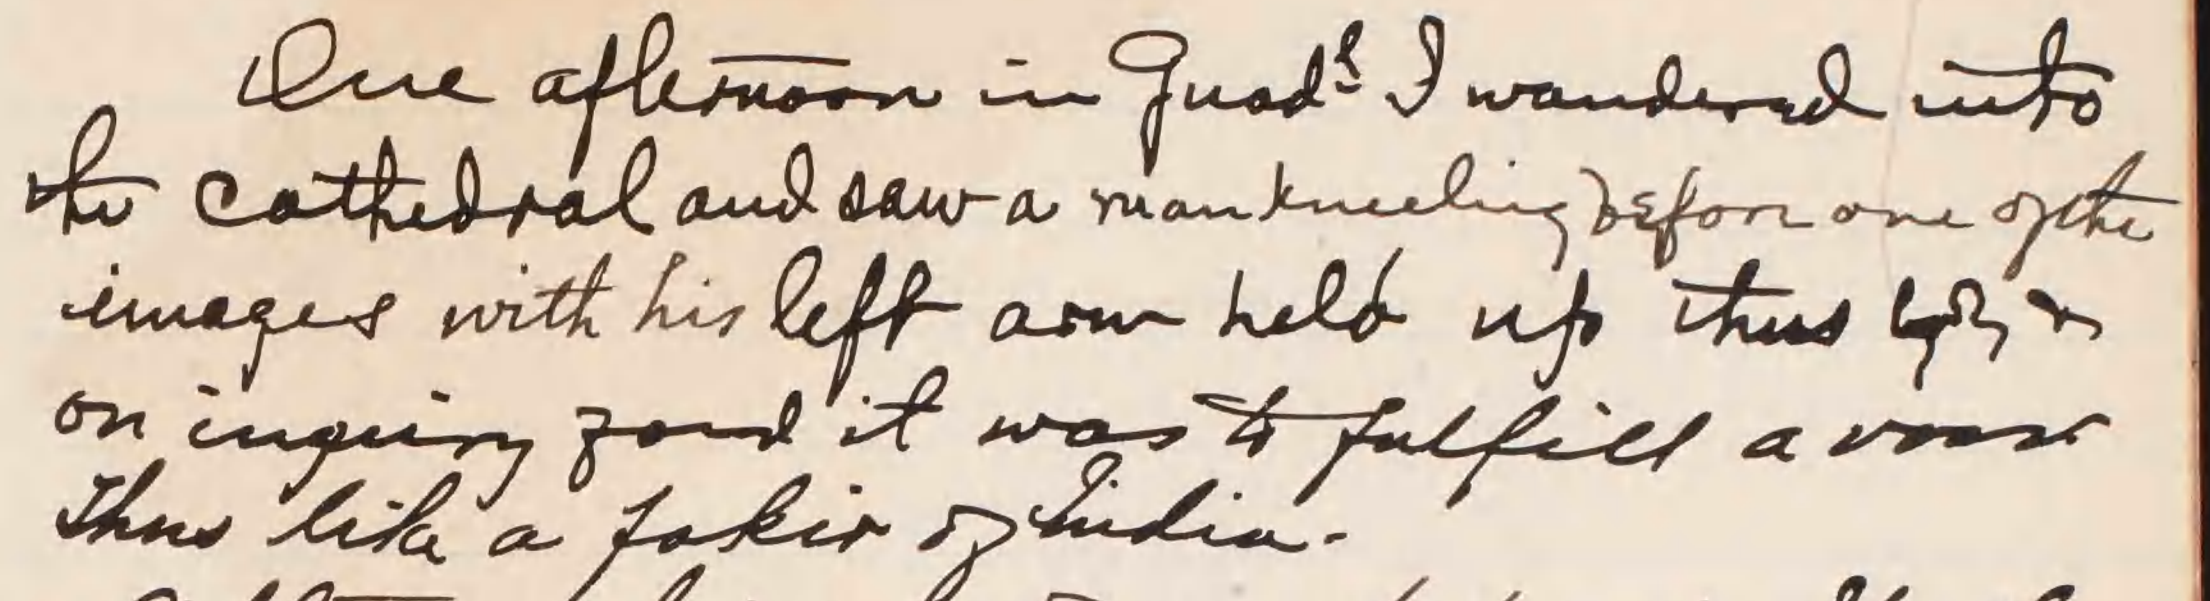 One afternoon in Guadª I wandered into
the cathedral and saw a man kneeling before one of the
images with his left arm held up thus &
on inquiry found it was to fulfill a vow
Thus like a fakir of India.